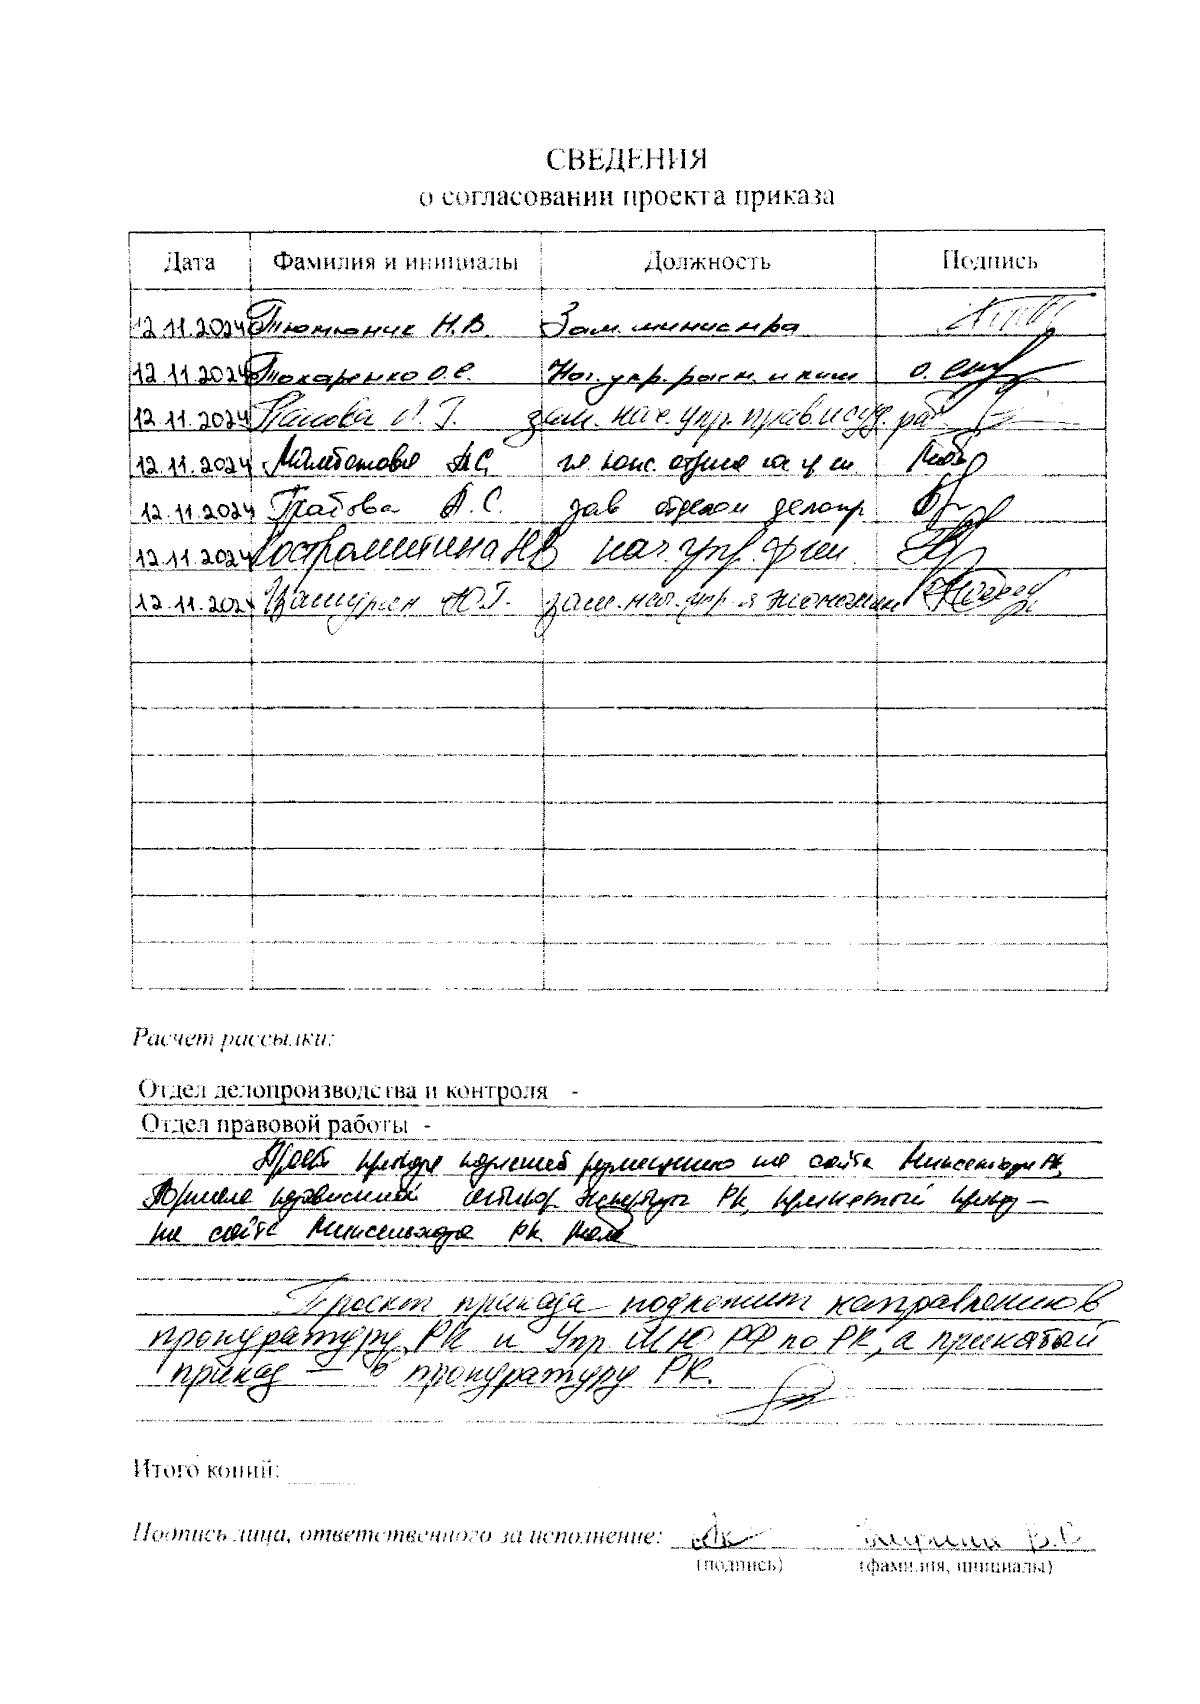 СВЕДЕНИЯ
о согласовании проекта приказа
Дата Фамилия и инициалы Должность Подпись
12.11.2024 Тютюник Н.В. Зам. министра
12.11.2024 Токаренко О.С. Нач. упр. раст. и
12.11.2024 Панова Л.Г. зам. нач. упр. прав. и суд. раб
12.11.2024
12.11.2024 Грабова А.С. зав отделом делопр
12.11.2024 Костромитина НВ нач. упр. фин.
12.11.2024 Ю.Г. зам. нач. упр
Расчет рассылки:
Отдел делопроизводства и контроля -
Отдел правовой работы -
Проект приказа подлежит размещению на сайте Минсельхоза РК,
РК, принятый приказ –
на сайте Минсельхоза РК
Проект приказа подлежит направлению в
прокуратуру РК и Упр МЮ РФ по РК, а принятый
приказ – в прокуратуру РК.
Итого копий:
Подпись лица, ответственного за исполнение:
(подпись) (фамилия, инициалы)